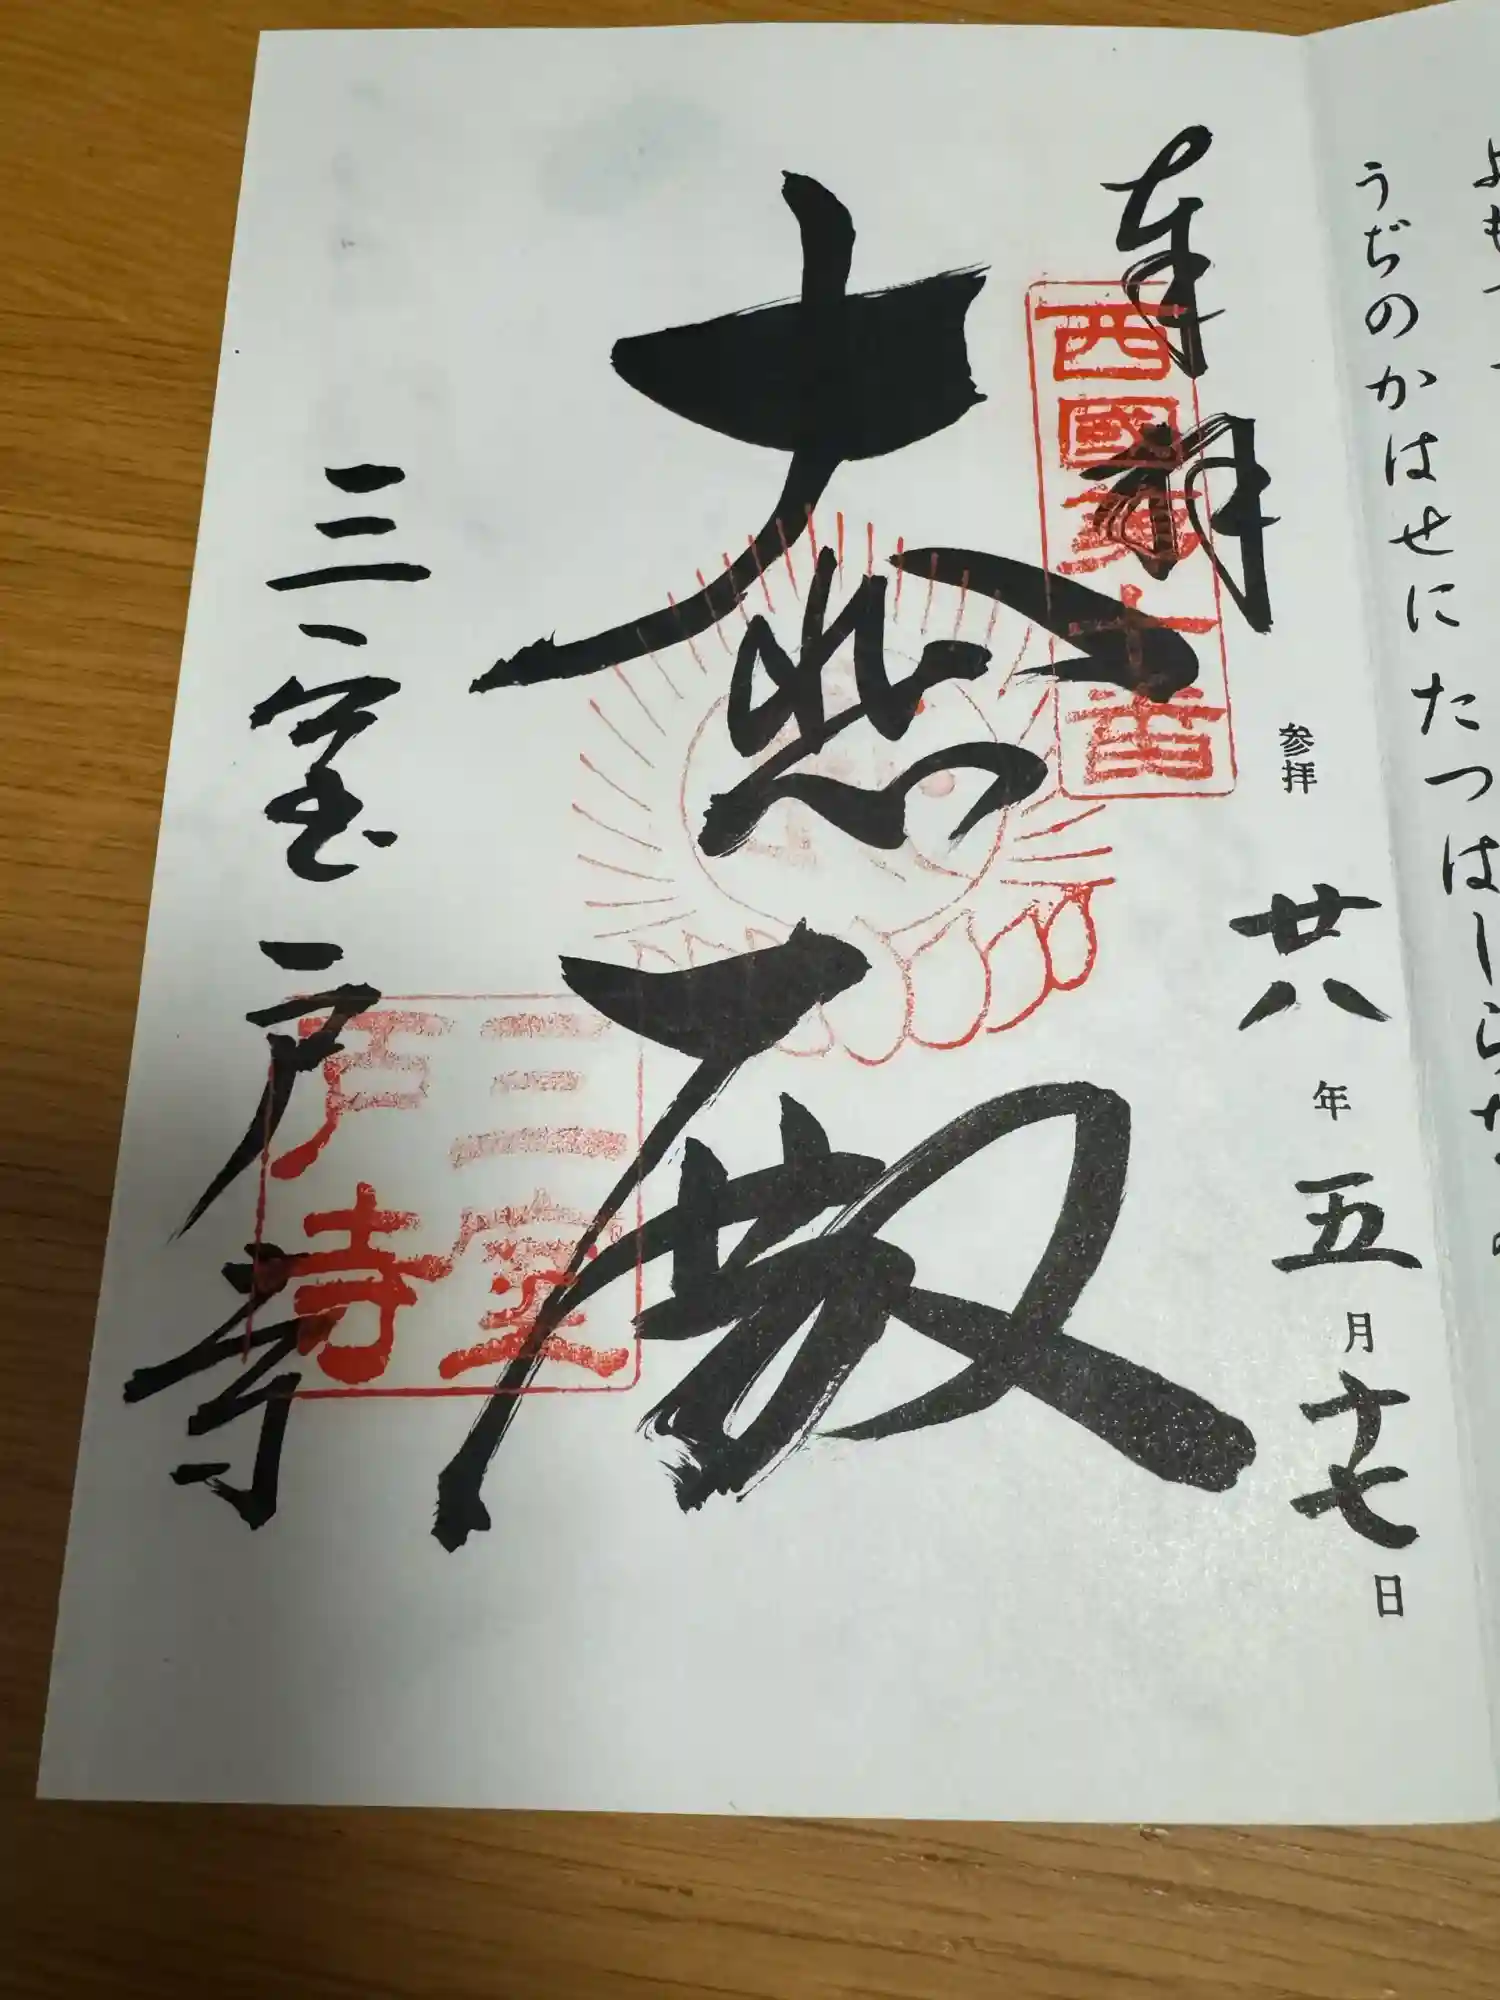 うぢのかはせにたつはしらなみ
奉拝
西國第十番
参拝 廿八年五月十七日
大悲殿
三室戸寺
三室戸寺